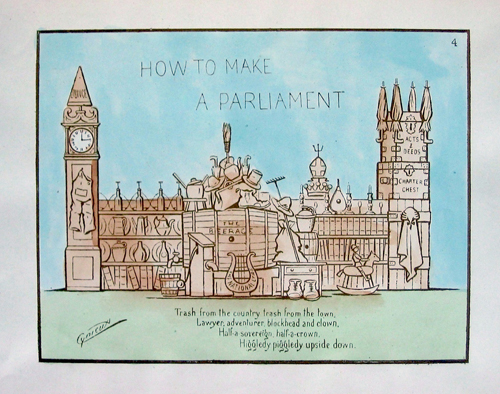 4
HOW TO MAKE
A PARLIAMENT
ACTS
&
DEEDS
CHARTER
CHEST
THE
BEERAGE
NATIONAL
Trash from the country trash from the town,
Lawyer, adventurer, blockhead and clown,
Half-a sovereign, half-a-crown,
Higgledy piggledy upside down.